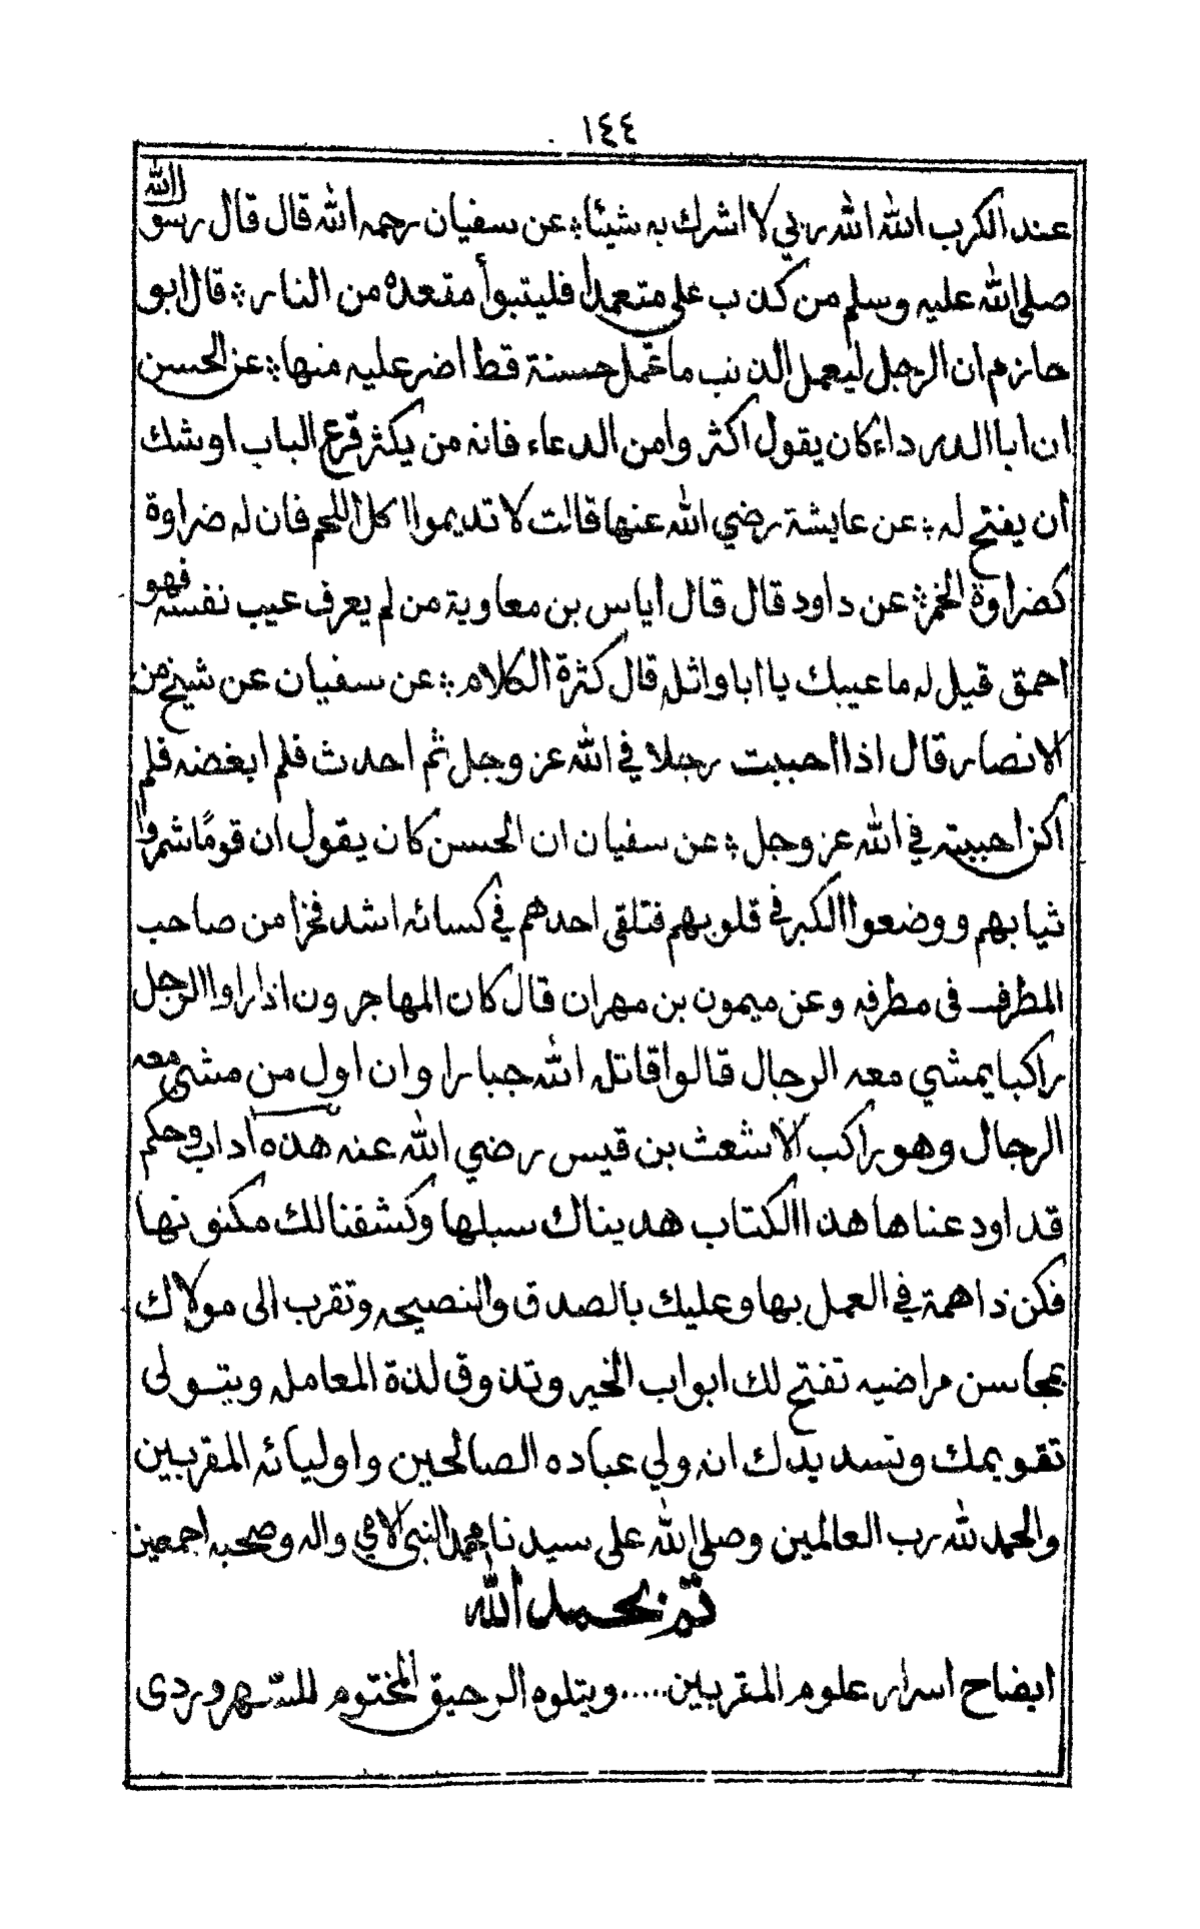 ١٤٤
عند الكرب الله الله ربي لا اشرك به شيئا؞ عن سفيان رحمه الله قال قال رسول الله
صلى الله عليه وسلم من كذب علي متعمدا فليتبوأ مقعده من النار؞ قال ابو
حازم ان الرجل ليعمل الذنب ما عمل حسنة قط اضر عليه منها؞ عن الحسن
ان ابا الدرداء كان يقول اكثروا من الدعاء فانه من يكثر قرع الباب اوشك
أن يفتح له؞ عن عايشة رضي الله عنها قالت لا تديموا اكل اللحم فان له ضراوة
كضراوة الخمر؞ عن داود قال قال أياس بن معاوية من لم يعرف عيب نفسه فهو
احمق قيل له ما عيبك يا ابا واثله قال كثرة الكلام؞ عن سفيان عن شيخ من
الانصار قال اذا احببت رجلا في الله عز وجل ثم أحدث فلم ابغضه فلم
اكن احببته في الله عز وجل؞ عن سفيان ان الحسن كان يقول ان قومًا شمروا
ثيابهم ووضعوا الكبر في قلوبهم فتلقى احدهم في كسائه اشد فخرا من صاحب
المطرف فى مطرفه وعن ميمون بن مهران قال كان المهاجرون اذا راوا الرجل
راكبا يمشي معه الرجال قالوا قاتله الله جبارا وان اول من مشى معه
الرجال وهو راكب الاشعث بن قيس رضي الله عنه هذه آداب وحكم
قد اودعناها هذا الكتاب هديناك سبلها وكشفنا لك مكنونها
فكن ذا همة في العمل بها وعليك بالصدق والنصيحه وتقرب الى مولاك
بمحاسن مراضيه تفتح لك ابواب الخير وتذوق لذة المعامله ويتولى
تقويمك وتسديدك انه ولي عباده الصالحين واوليائه المقربين
والحمد لله رب العالمين وصلى الله على سيدنا محمد النبي الامي واله وصحبه اجمعين
تم بحمد الله
ايضاح اسرار علوم المقربين..... ويتلوه الرحيق المختوم للسهروردى